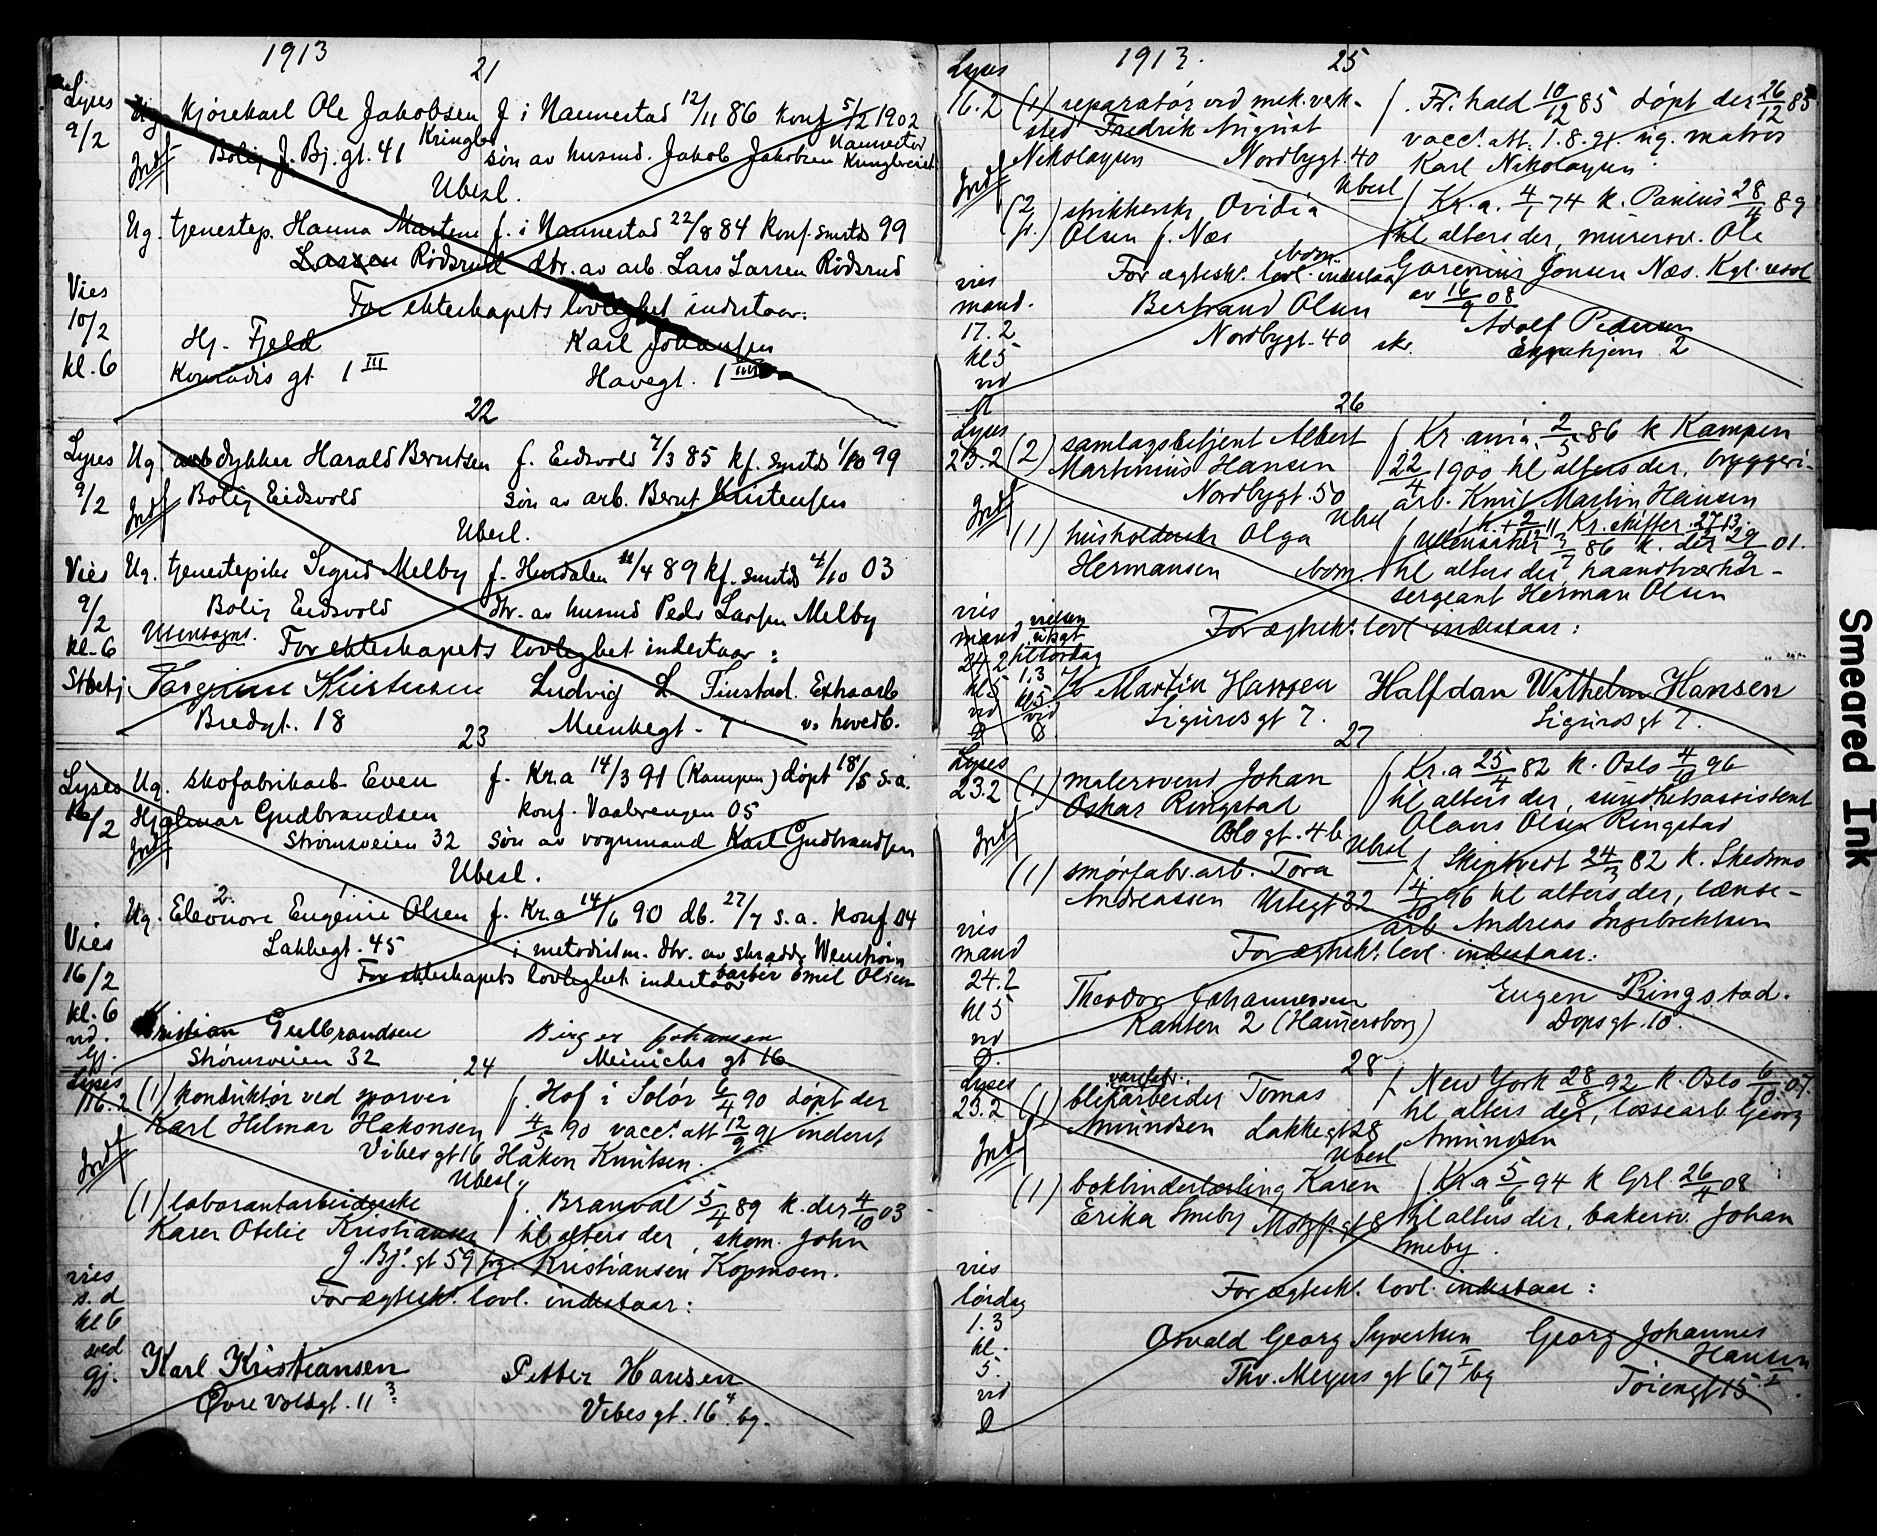 1913
21
Lyses
9/2
Ug. Kjørekarl Ole Jakobsen f i Nannestad 12/11 86 Konf 5/2 1902
Kringler
Nannestad
Bolig J. Bj. gt. 41 søn av husmd. Jakob Jakobsen
Ubesl.
Ug. tjenestep. Hanna Martine f. i Nannestad 22/8 84 Konf. smsts 99
Larsen Rödsrud dtr. av arb. Lars Larsen Rödsrud
For ekteskapets lovlighet indestaar:
Vies
10/2
kl. 6
Hj. Fjeld Karl Johansen
Konradis gt 1 III Havegt. 1
22
Lyses
9/2
Ug. arb dykker Harald Berntsen f. Eidsvold 7/3 85 kf. smsts 1/10 99
Bolig Eidsvold søn av arb. Bernt Kristensen
Ubesl.
Vies
9/2
kl. 6
Ug. tjenestepike Sigrid Melby f. Hurdalen 11/4 89 kf. smsts 4/10 03
Bolig Eidsvold dtr. av husmd Peder Larsen Melby
Utensogns. For ekteskapets lovlighet indestaar:
Kristensen Ludvig L. Finstad. Extraarb
Bredgt. 18 Munkegt. 7 v. hovedb.
23
Lyses
16/2
Ug. skofabrikarb Even f. Kr.a 14/3 91 (Kampen) døpt 18/5 s.a.
Hjalmar Gudbrandsen konf. Vaalerengen 05
Strømsveien 32 søn av vognmand Karl Gudbrandsen
Ubesl.
2.
Ug. Eleonore Eugenie Olsen f. Kr.a 14/6 90 db. 27/7 s.a. Konf 04
Lakkegt. 45 i metodistm. dtr. av skrædder Wenstrøm
For ekteskapets lovlighet indestaar barber Emil Olsen
Vies
16/2
kl. 6
vd.
Gj.
Kristian Gulbrandsen Birger Johansen
Strømsveien 32 Meinichs gt 16
24
Lyses
16.2
(1) Konduktør ved sporvei f. Hof i Solør 6/4 90 døpt der
Karl Hilmar Hakonsen 4/5 90 vacc. att 12/9 91 inderst
Vibes gt 16 Hakon Knutsen.
Ubesl.
(1) laborantarbeiderske f. Branval 5/4 89 k. der 4/10 03
Karen Otilie Kristiansen til alters der, skom. John
J. Bj. gt 59 bg. Kristiansen Kopmoen.
For ægtesk. lovl. indestaar:
vies
s. d
kl 6
ved
Gj.
Karl Kristiansen Petter Hansen
Øvre Voldgt. 11 3 Vibes gt. 16 4 bg.
1913.
25
Lyses
16.2
(1) reparatør ved mek. verk- f. Fr. hald 10/12 85 døpt der 26/12 85
sted Fredrik August vacc. att. 1.8.91. ug. matros
Nikolaysen Nordbygt. 40 Karl Nikolaysen
Ubesl
(2 fr.) strikkerske Ovidia f Kr.a. 4/1 74 k. Paulus 28/4 89
Olsen f. Næs til alters der, murersv. Ole
For ægtesk. lovl. indestaar Jonsen Næs. Kgl. resol
av 16/9 08
vies
mand.
17.2
kl 5
vd
Bertrand Olsen Adolf Pedersen
Nordbygt. 40 skr. 2
26
Lyses
23.2
(2) samlagsbetjent Albert f Kr.ania 2/5 86 k Kampen
Martinius Hansen 22/4 1900 til alters der, bryggeri-
Nordbygt. 50 arb. Knut Martin Hansen
Ubesl
Kr. skifter. 27/1 13.
(1) husholderske Olga f Ullensaker 3/7 86 k. der 29/9 01.
Hermansen til alters der, haandværker-
sergeant Herman Olsen
For ægtesk. lovl indestaar:
vies
mand
24.2
kl 5
vd
vielsen
utsat
til lørdag
1.3
kl 5
vd
Martin Hansen Halfdan Wilhelm Hansen
Sigurds gt 7. Sigurds gt 7.
27
Lyses
23.2
(1) malersvend Johan f Kr.a 25/4 82 k. Oslo 4/10 96
Oskar Ringstad til alters der, sundhetsassistent
Oslo gt. 46 Olaus Olsen Ringstad
Ubesl
(1) smørfabr. arb. Tora f Skiptvedt 24/3 82 k. Skedsmo
Andreassen Urtegt 32 4/10 96 til alters der, lænse-
arb Andreas Ingebrektsen
For ægtesk. lovl. indestaar:
vies
mand
24.2
kl 5
vd
Theodor Johannessen Eugen Ringstad.
Kanten 2 (Hamersborg) Dops gt. 10.
28
Lyses
23.2
varefabr.
(1) blikarbeider Tomas f New York 28/8 92 k. Oslo 6/10 07.
Amundsen Lakkegt 28 til alters der, lossearb Georg
Amundsen
Ubesl
(1) bokbinderlærling Karen f Kr.a 5/6 94 k Grl. 26/4 08
Erika Smeby Motzfr. gt 8 til alters der, bakersv. Johan
Smeby.
For ægtesk. lovl. indestaar:
vies
lørdag
1.3
kl.
5.
vd
Osvald Georg Syvertsen Georg Johannes
Hansen
Thv. Meyers gt 67 I bg Tøiengt 15 I.
Smeared Ink